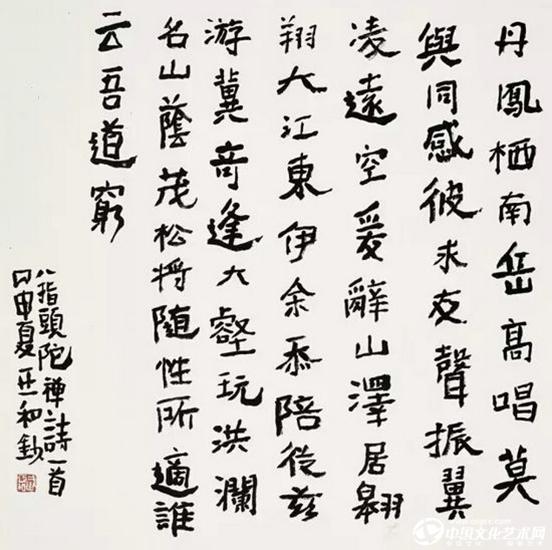 丹鳳栖南岳高唱莫
與同感彼求友聲振翼
凌遠空爰辭山澤居翱
翔大江東伊余忝陪從茲
游冀奇逢大壑玩洪瀾
名山蔭茂松將隨性所適誰
云吾道窮
八指頭陀禪詩一首
申夏和鈔
中国文化艺术网